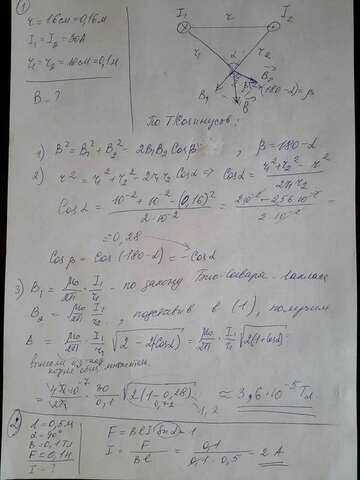 1
r = 16см = 0,16м
I₁ = I₂ = 30А
r₁ = r₂ = 10см = 0,1м
B - ?
I₁ r I₂
r₁ α r₂
B₁ B B₂ (180-α) = β
По Т Косинусов:
1) B² = B₁² + B₂² - 2B₁B₂ Cosβ , β = 180-α
2) r² = r₁² + r₂² - 2r₁r₂ Cosα ⇒ Cosα = (r₁² + r₂² - r²) / (2r₁r₂)
Cosα = (10⁻² + 10⁻² - (0,16)²) / (2·10⁻²) = (2·10⁻² - 2,56·10⁻²) / (2·10⁻²) =
= 0,28
Cosβ = Cos(180-α) = -Cosα
3) B₁ = μ₀/2π · I₁/r₁ - по закону Био-Савара-Лапласа
B₂ = μ₀/2π · I₁/r₁ , подставив в (1), получим
B = μ₀/2π · I₁/r₁ √(2 - 2(Cosα)) = μ₀/2π · I₁/r₁ √(2(1+Cosα)) =
вынесли из-под
корня общ. множитель
= (4π·10⁻⁷)/2π · 30/0,1 √(2(1-0,28)) ≈ 3,6·10⁻⁵ Тл
0,72
1,2
2
l = 0,5м
α = 90°
B = 0,1Тл
F = 0,1Н
I = ?
F = BlI Sinα = 1
I = F/Bl = 0,1/(0,1·0,5) = 2 А